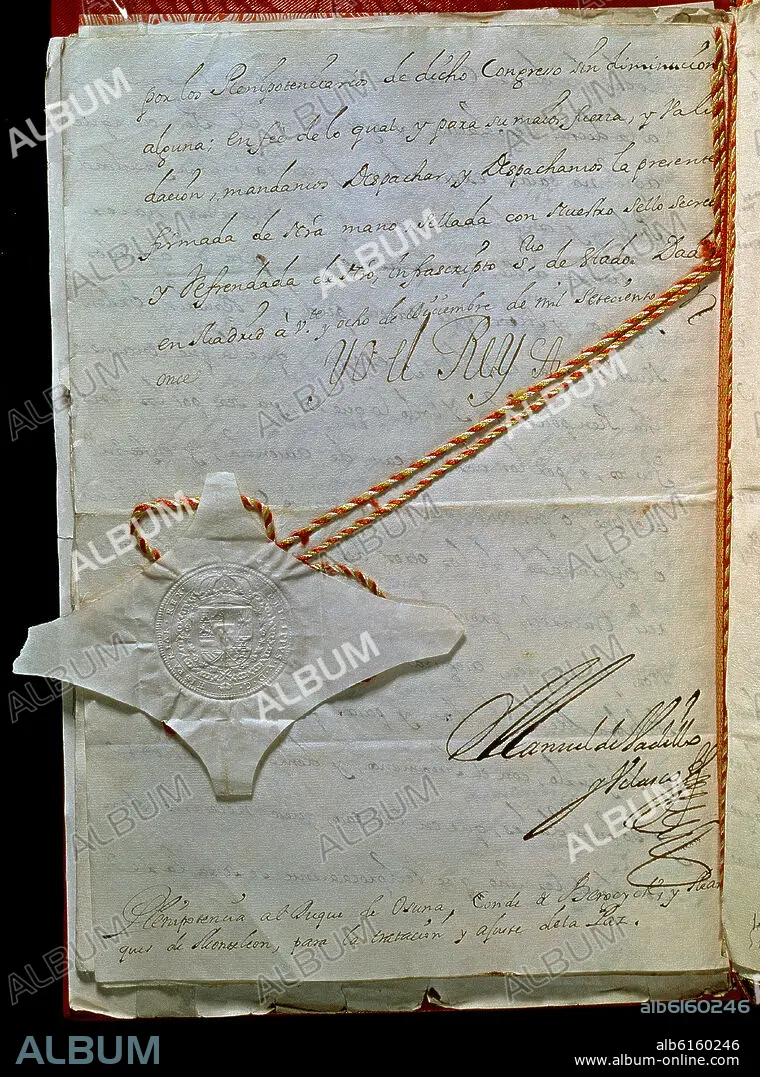 por los Plenipotenciarios de dicho Congreso sin diminucion
alguna; en fee de lo qual, y para su maior fuerza, y Vali
dacion, mandamos Despachar, y Despachamos la presente
firmada de nra mano, sellada con nuestro sello secreto
y Refrendada del nro, infrascripto Srio, de Estado. Dada
en Madrid à Vte y ocho de Diziembre de mil setecientos
once
Yo el Rey
Manuel de Vadillo
y Velasco
Plenipotencia al Duque de Osuna, Conde de Bergeyck, y Mar
ques de Monteleon, para la tratacion y ajuste de la Paz.
ALBUM
alb6160246
ALBUM
alb6160246
www.album-online.com